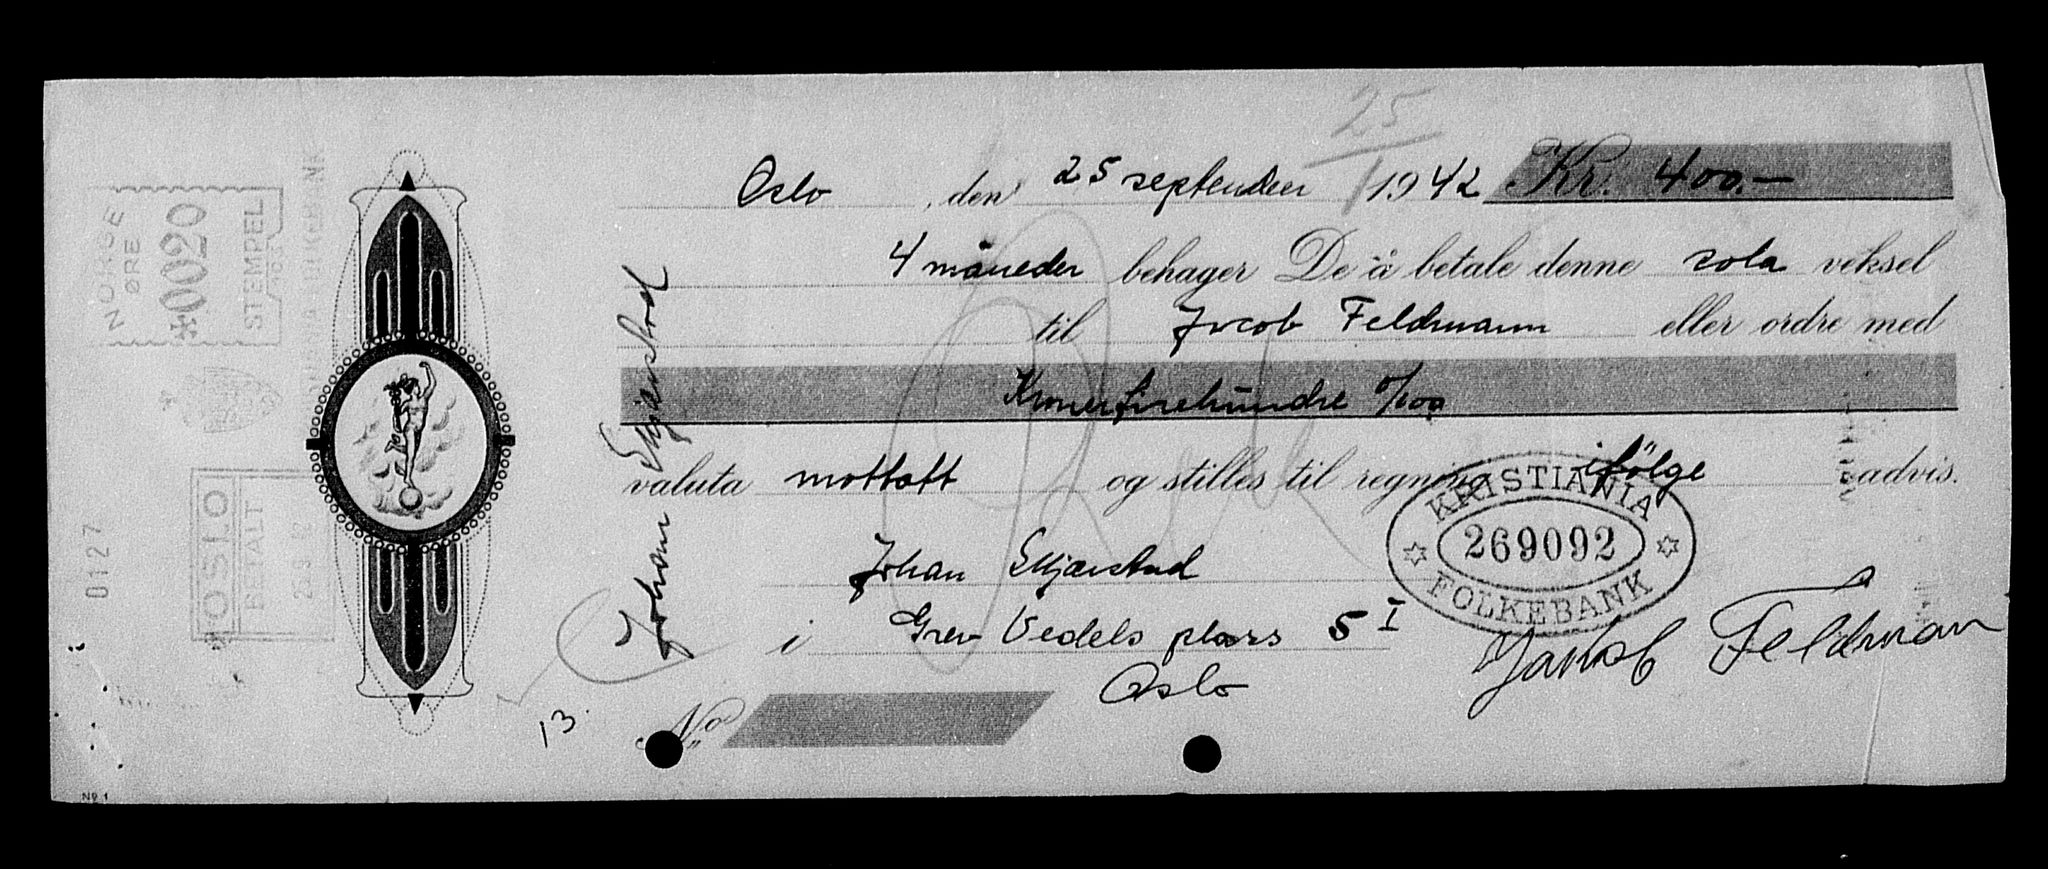 25/1
Oslo, den 25 september 1942 Kr. 400.—
4 måneder behager De å betale denne sola veksel
til Jacob Feldmann eller ordre med
Kroner firehundre 0/00
valuta mottatt og stilles til regning ifølge advis.
Johan Skjærstad
i Grev Vedels plass 5 I
Oslo
Jakob Feldman
No
13.
Johan Skjærstad
KRISTIANIA
269092
FOLKEBANK
NORGE
ØRE
*0020
STEMPEL
OSLO
BETALT
25 9 42
0127
No 1